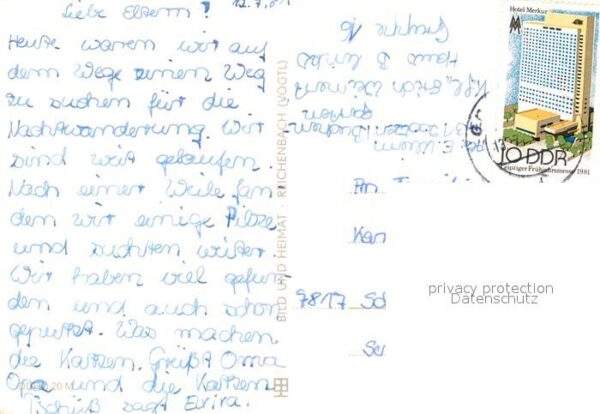 Liebe Eltern! 12.7.81
Heute waren wir auf
dem Wege einen Weg
zu suchen für die
Nachtwanderung. Wir
sind weit gelaufen.
Nach einer Weile fan
den wir einige Pilze
und suchten weiter.
Wir haben viel gefun
den und auch schon
geputzt. Was machen
die Katzen. Grüßt Oma
Opa und die Katzen
Tschüß sagt Elvira.
Gruppe 16
Haus B
Erich Weinert
BILD UND HEIMAT · REICHENBACH (VOGTL)
Hotel Merkur
10 DDR
Leipziger Frühjahrsmesse 1981
Kar
9817 Sd
privacy protection
Datenschutz